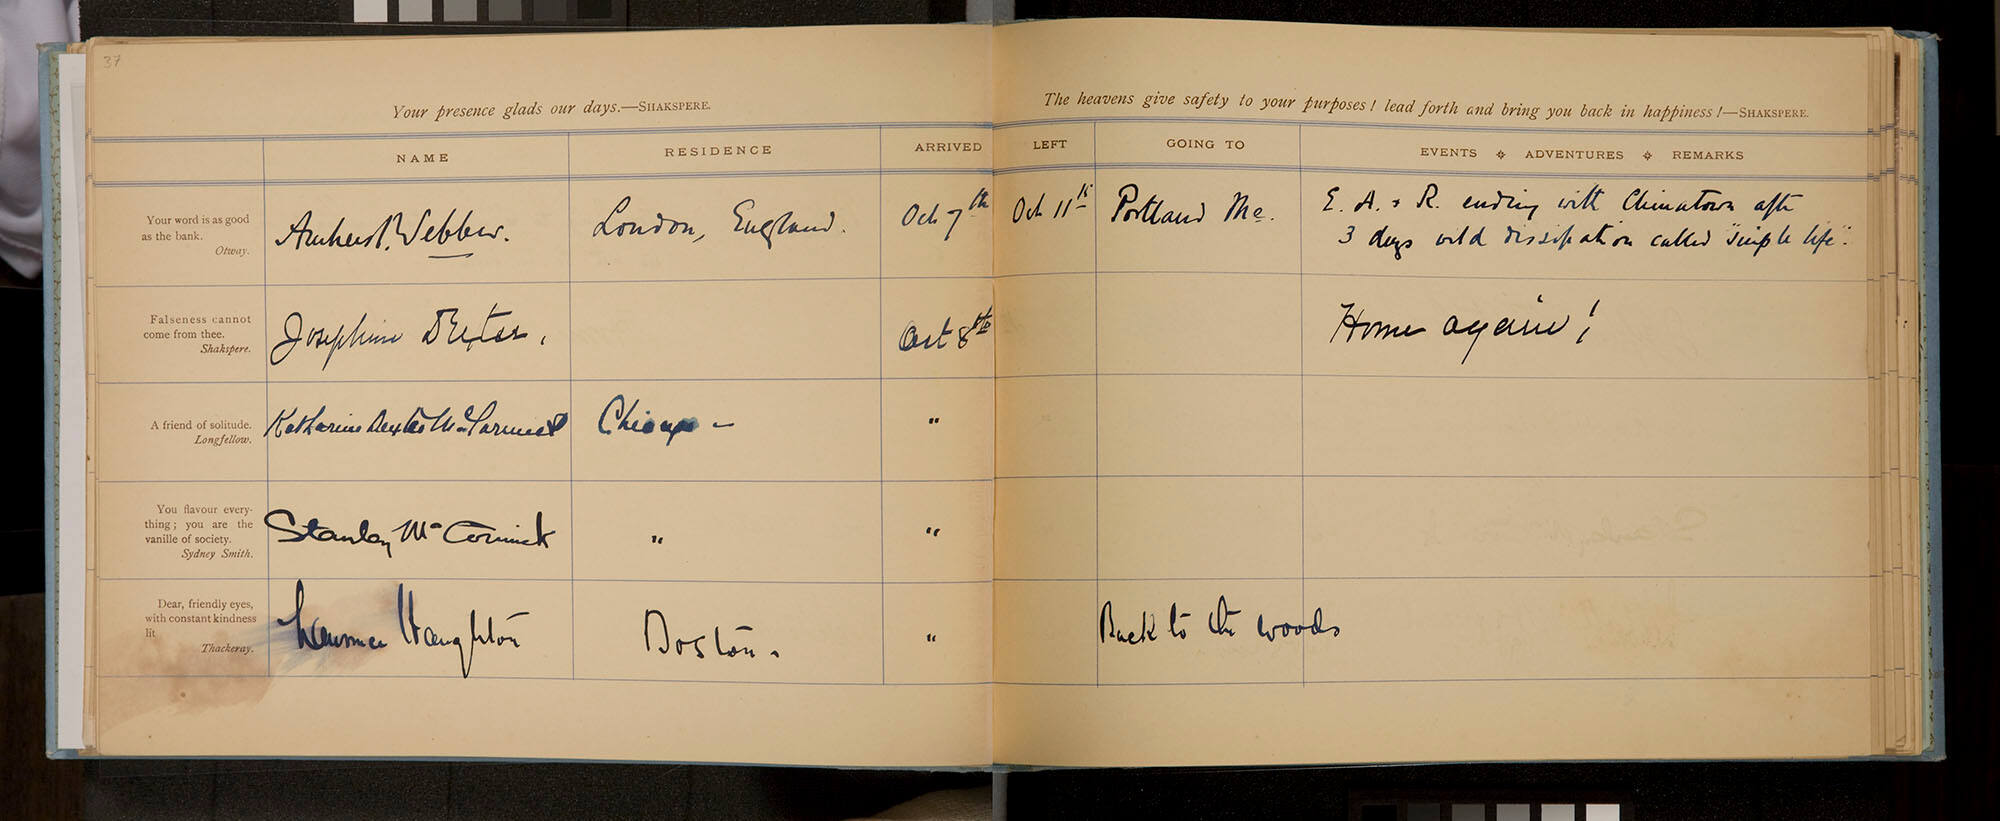 37
Your presence glads our days.—SHAKSPERE.
The heavens give safety to your purposes! lead forth and bring you back in happiness!—SHAKSPERE.
NAME RESIDENCE ARRIVED LEFT GOING TO EVENTS ADVENTURES REMARKS
Your word is as good
as the bank.
Otway.
Amherst Webber. London, England. Oct 7th Oct 11th Portland Me. E. A. & R. ending with Chinatown after
3 days wild dissipation called "simple life".
Falseness cannot
come from thee.
Shakspere.
Josephine Dexter. Oct 8th Home again!
A friend of solitude.
Longfellow.
Katharine Dexter McCormick Chicago – "
You flavour every-
thing; you are the
vanille of society.
Sydney Smith.
Stanley McCormick " "
Dear, friendly eyes,
with constant kindness
lit
Thackeray.
Haughton Boston. " Back to the woods